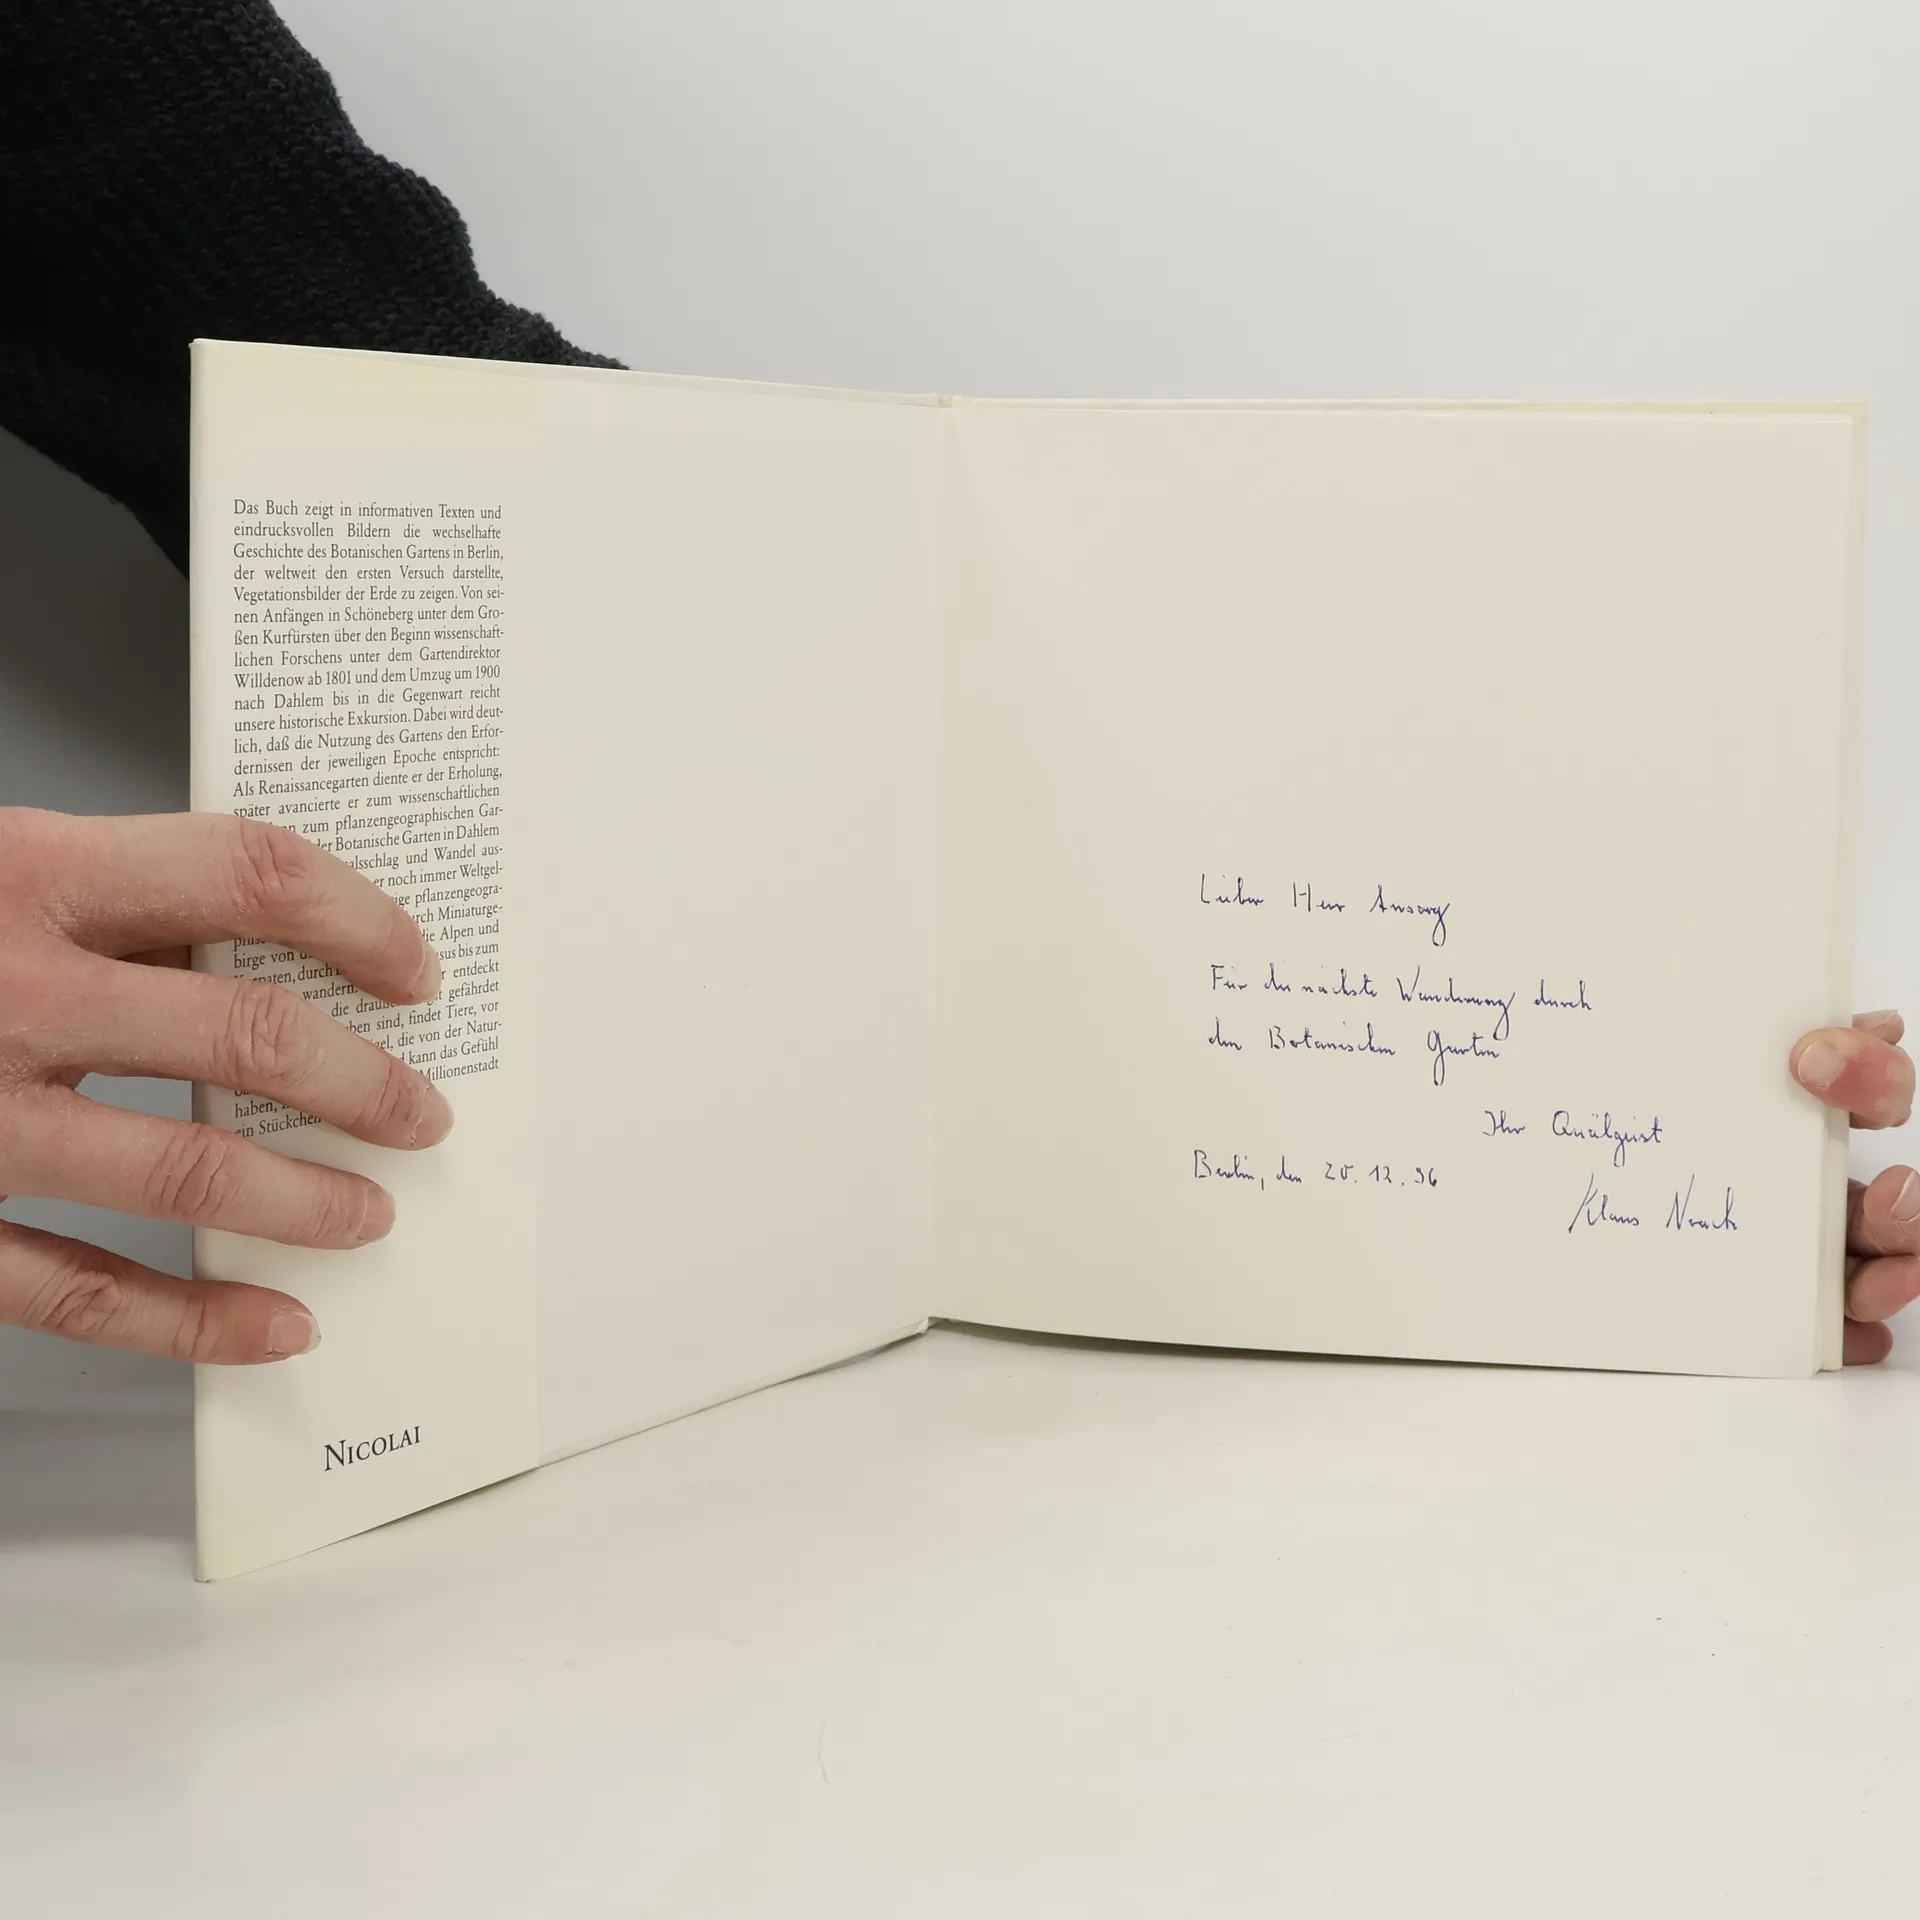 Das Buch zeigt in informativen Texten und
eindrucksvollen Bildern die wechselhafte
Geschichte des Botanischen Gartens in Berlin,
der weltweit den ersten Versuch darstellte,
Vegetationsbilder der Erde zu zeigen. Von sei-
nen Anfängen in Schöneberg unter dem Gro-
ßen Kurfürsten über den Beginn wissenschaft-
lichen Forschens unter dem Gartendirektor
Willdenow ab 1801 und dem Umzug um 1900
nach Dahlem bis in die Gegenwart reicht
unsere historische Exkursion. Dabei wird deut-
lich, daß die Nutzung des Gartens den Erfor-
dernissen der jeweiligen Epoche entspricht:
Als Renaissancegarten diente er der Erholung,
später avancierte er zum wissenschaftlichen
zum pflanzengeographischen Gar-
der Botanische Garten in Dahlem
alsschlag und Wandel aus-
er noch immer Weltgel-
ige pflanzengeogra-
urch Miniaturge-
die Alpen und
birge von sus bis zum
paten, durch entdeckt
wandern. gefährdet
die drauß
ben sind, findet Tiere, vor
gel, die von der Natur-
kann das Gefühl
Millionenstadt
haben,
ein Stückchen
NICOLAI
Lieber Herr Ansorg
Für die nächste Wanderung durch
den Botanischen Garten
Ihr Quälgeist
Berlin, den 20.12.96
Klaus Noack